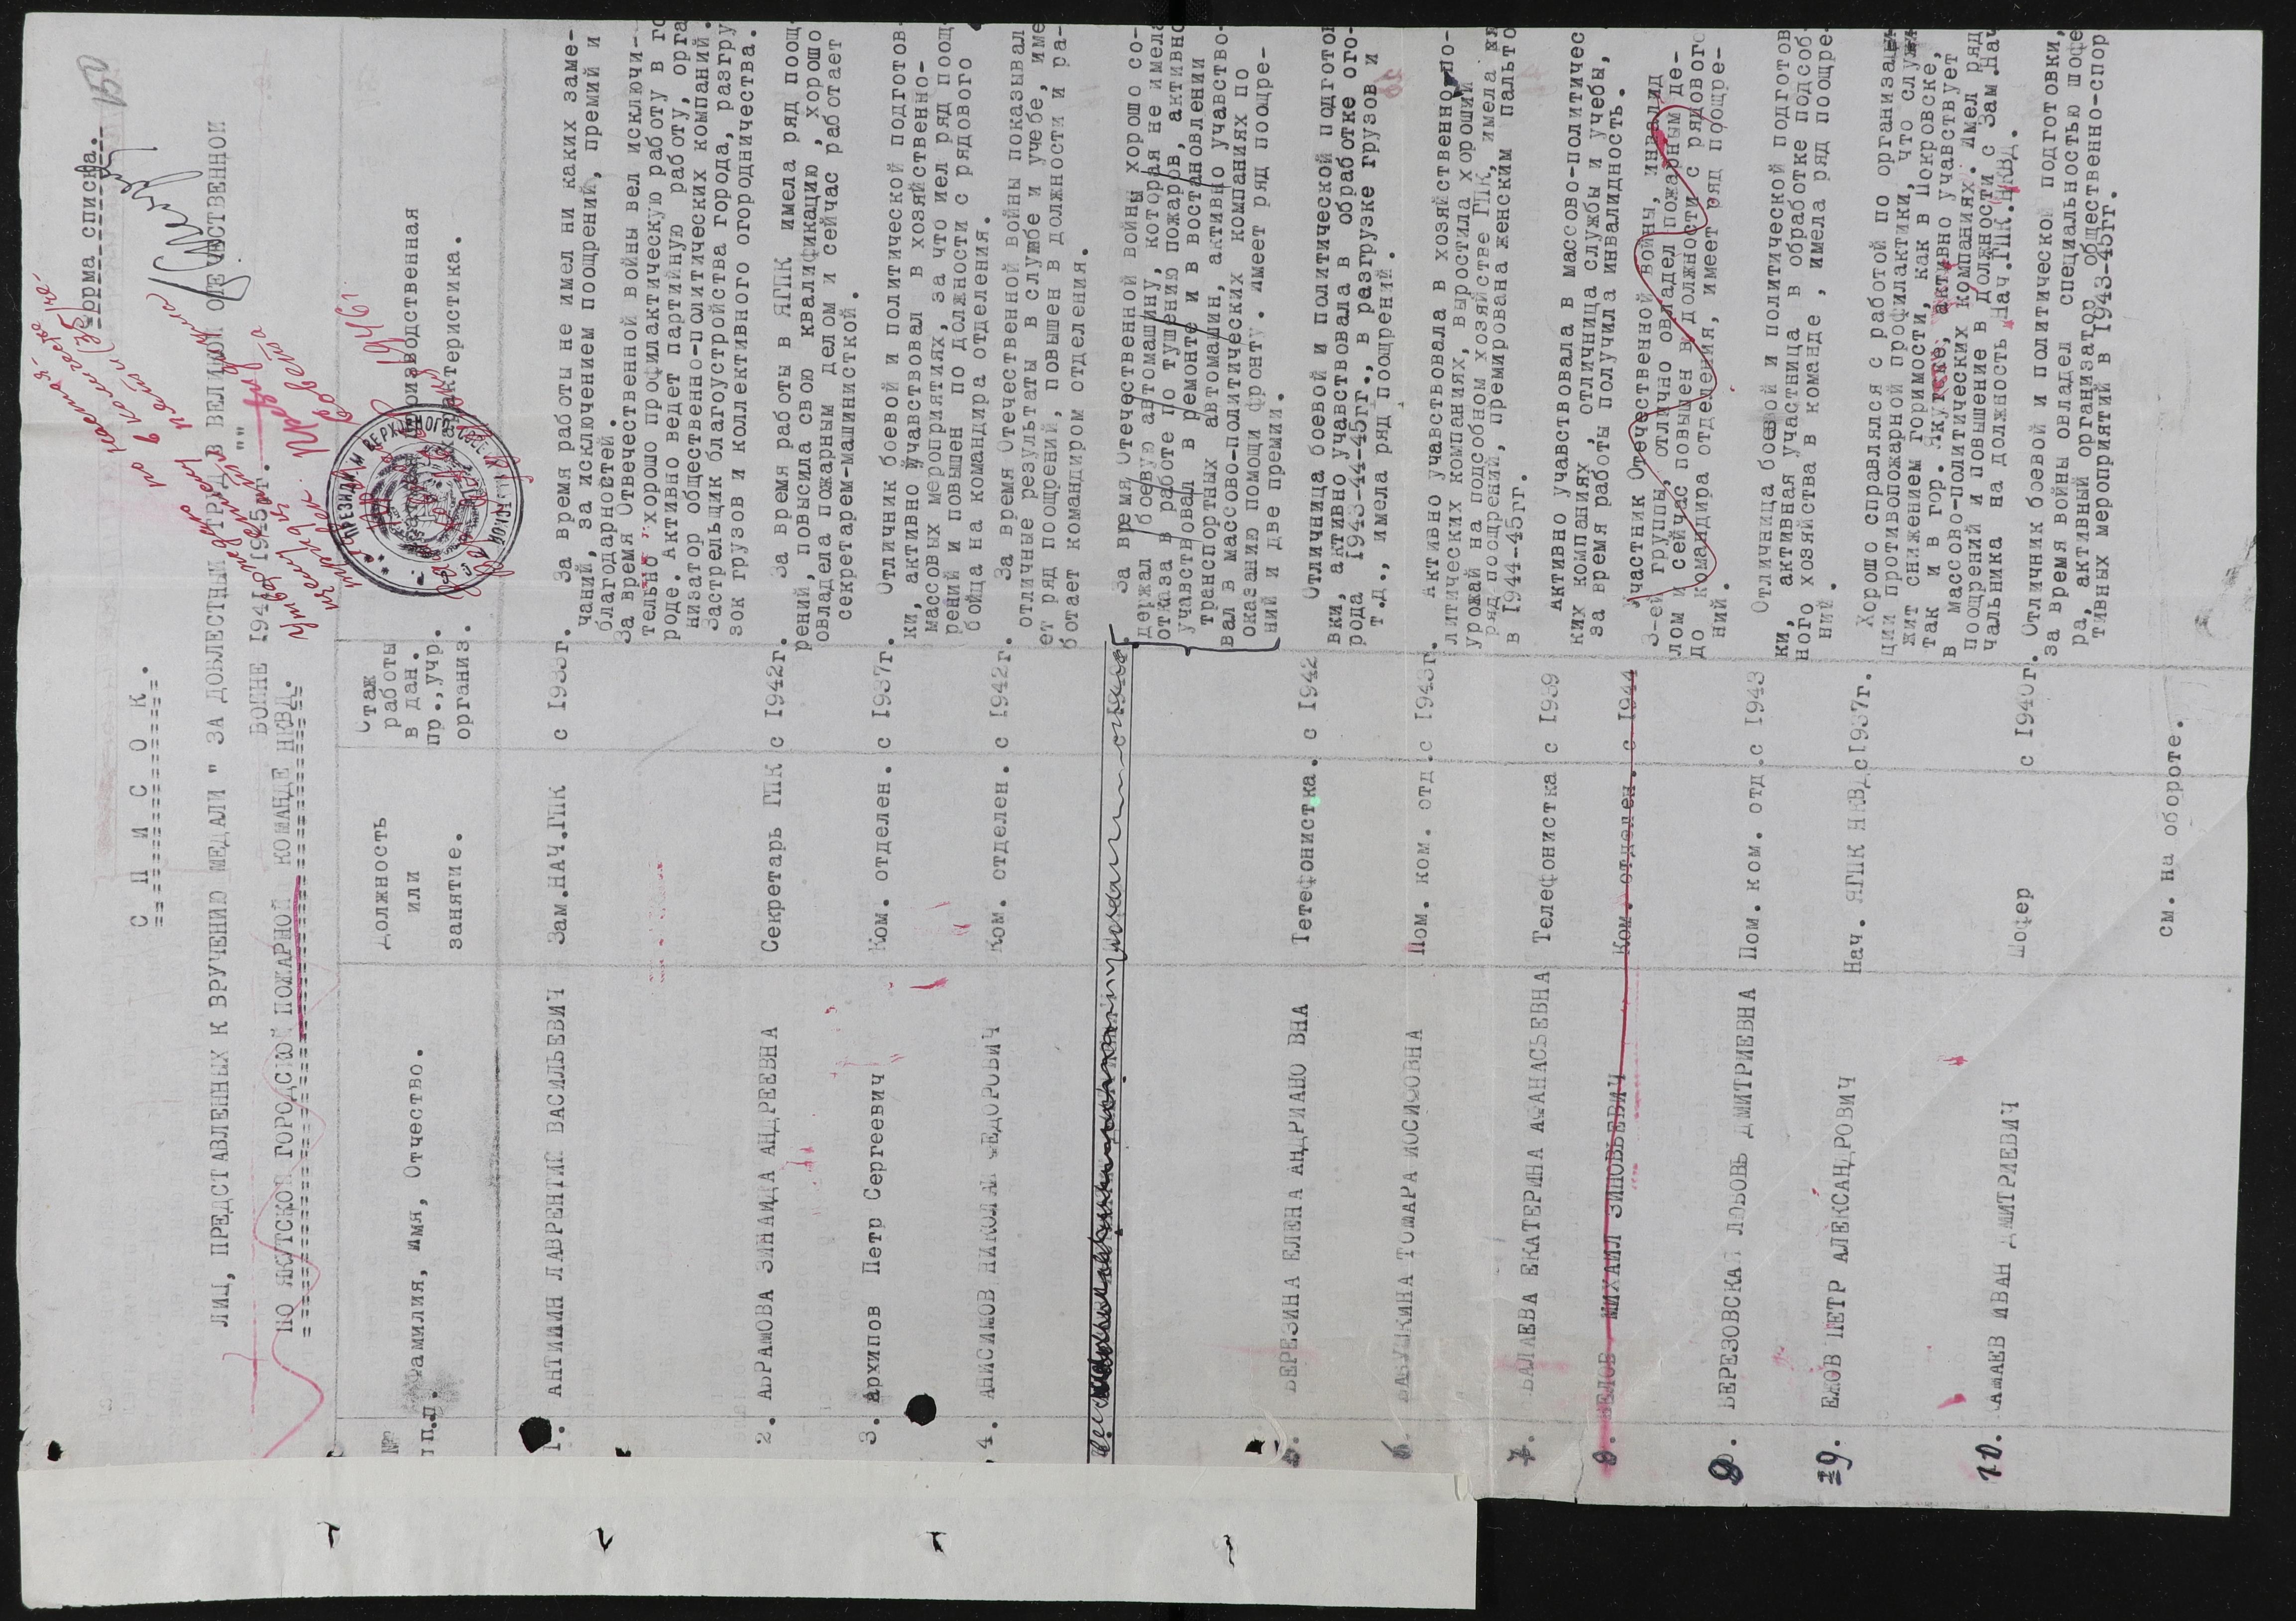 Форма списка.
150
С П И С О К.
ЛИЦ, ПРЕДСТАВЛЕННЫХ К ВРУЧЕНИЮ МЕДАЛИ " ЗА ДОБЛЕСТНЫЙ ТРУД В ВЕЛИКОЙ ОТЕЧЕСТВЕННОЙ
ВОЙНЕ 1941-1945гг. ""
ПО ЯКУТСКОЙ ГОРОДСКОЙ ПОЖАРНОЙ КОМАНДЕ НКВД.
№№ п.п. Фамилия, Имя, Отчество.
Должность или занятие.
Стаж работы в дан. пр.,учр. организ.
Производственная характеристика.
1. АНТИПИН ЛАВРЕНТИЙ ВАСИЛЬЕВИЧ Зам.НАЧ.ГПК с 1933г.
За время работы не имел ни каких заме-
чаний, за исключением поощрений, премий и
благодарностей.
За время Отвечественной войны вел исключи-
тельно хорошо профилактическую работу в го
роде. Активно ведет партийную работу, орга
низатор общественно-политических компаний.
Застрельщик благоустройства города, разгру
зок грузов и коллективного огородничества.
2. АБРАМОВА ЗИНАИДА АНДРЕЕВНА Секретарь ГПК с 1942г.
За время работы в ЯГПК имела ряд поощ
рений, повысила свою квалификацию , хорошо
овладела пожарным делом и сейчас работает
секретарем-машинисткой.
3. Архипов Петр Сергеевич Ком. отделен. с 1937г.
Отличник боевой и политической подготов
ки, активно учавствовал в хозяйственно-
массовых мероприятиях, за что иел ряд поощ
рений и повышен по должности с рядового
бойца на командира отделения.
4. АНИСИМОВ НИКОЛАЙ ФЕДОРОВИЧ Ком. отделен. с 1942г.
За время Отечественной войны показывал
отличные результаты в службе и учебе, име
ет ряд поощрений, повышен в должности и ра-
ботает командиром отделения.
За время Отечественной войны хорошо со-
держал боевую автомашину, которая не имела
отказа в работе по тушению пожаров, активно
учавствовал в ремонте и востановлении
транспортных автомашин, активно учавство-
вал в массово-политических компаниях по
оказанию помощи фронту. Имеет ряд поощре-
ний и две премии.
5. БЕРЕЗИНА ЕЛЕНА АНДРИАНО ВНА Тетефонистка. с 1942
Отличница боевой и политической подготов
вки, активно учавствовала в обработке ого-
рода 1943-44-45гг., в разгрузке грузов и
т.д., имела ряд поощрений.
6. БАБУШКИНА ТОМАРА ИОСИФОВНА Пом. ком. отд.с 1943г.
Активно учавствовала в хозяйственно-по-
литических компаниях, выростила хороший
урожай на подсобном хозяйстве ГПК, имела
ряд поощрений, премирована женским пальто
в 1944-45гг.
7. БАЛАЕВА ЕКАТЕРИНА АФАНАСЬЕВНА Телефонистка с 1939
Активно учавствовала в массово-политичес
ких компаниях , отличница службы и учебы,
за время работы получила инвалидность.
8. БЕЛОВ МИХАИЛ ЗИНОВЬЕВИЧ Ком. отделен. с 1944
Участник Отечественной войны, инвалид
3-ей группы, отлично овладел пожарным де-
лом и сейчас повышен в должности с рядового
до командира отделения, имеет ряд поощре-
ний.
8. БЕРЕЗОВСКАЯ ЛЮБОВЬ ДМИТРИЕВНА Пом. ком. отд.с 1943
Отличница боевой и политической подготов
ки, активная участница в обработке подсоб
ного хозяйства в команде , имела ряд поощре
ний.
9. ЕЖОВ ПЕТР АЛЕКСАНДРОВИЧ Нач. ЯГПК НКВД с1937г.
Хорошо справлялся с работой по организа
ции противопожарной профилактики, что служи
жит снижением горимости, как в Покровске,
так и в гор. Якутске, активно учавствует
в массово-политических компаниях. Имел ряд
поощрений и повышение в должности с Зам.Нач
чальника на должность Нач.ГПК.НКВД.
10. МАЕВ ИВАН ДМИТРИЕВИЧ Шофер с 1940г.
Отличник боевой и политической подготовки,
за время войны овладел специальностью шофе
ра, активный организатор общественно-спор
тивных мероприятий в 1943-45гг.
см. на обороте.